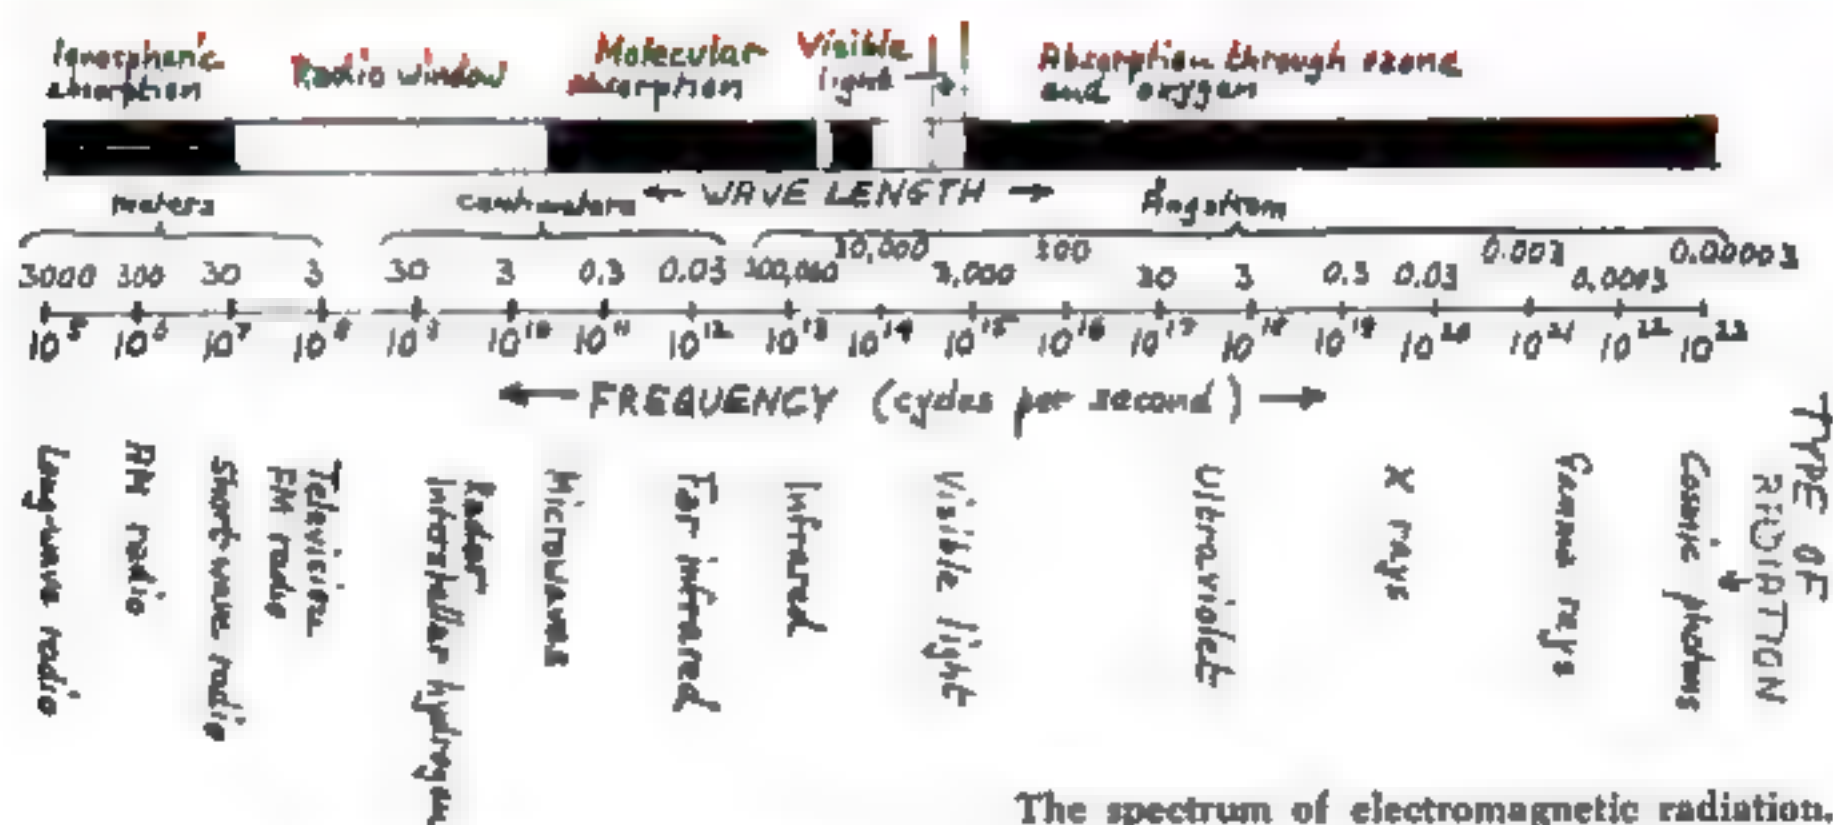 Ionospheric
absorption
Radio window
Molecular
absorption
Visible
light
Absorption through ozone
and oxygen
← WAVE LENGTH →
meters
centimeters
Angstrom
3000 300 30 3 30 3 0.3 0.03 10,000 3,000 300 30 3 0.3 0.03 0.003 0.0003 0.00003
10⁵ 10⁶ 10⁷ 10⁸ 10⁹ 10¹⁰ 10¹¹ 10¹² 10¹³ 10¹⁴ 10¹⁵ 10¹⁶ 10¹⁷ 10¹⁸ 10¹⁹ 10²⁰ 10²¹ 10²² 10²³
← FREQUENCY (cycles per second) →
Long-wave radio
AM radio
Short-wave radio
Television
FM radio
Radar
Interstellar hydrogen
Microwave
Far infrared
Infrared
Visible light
Ultraviolet
X rays
Gamma rays
Cosmic photons
TYPE OF
RADIATION
The spectrum of electromagnetic radiation.